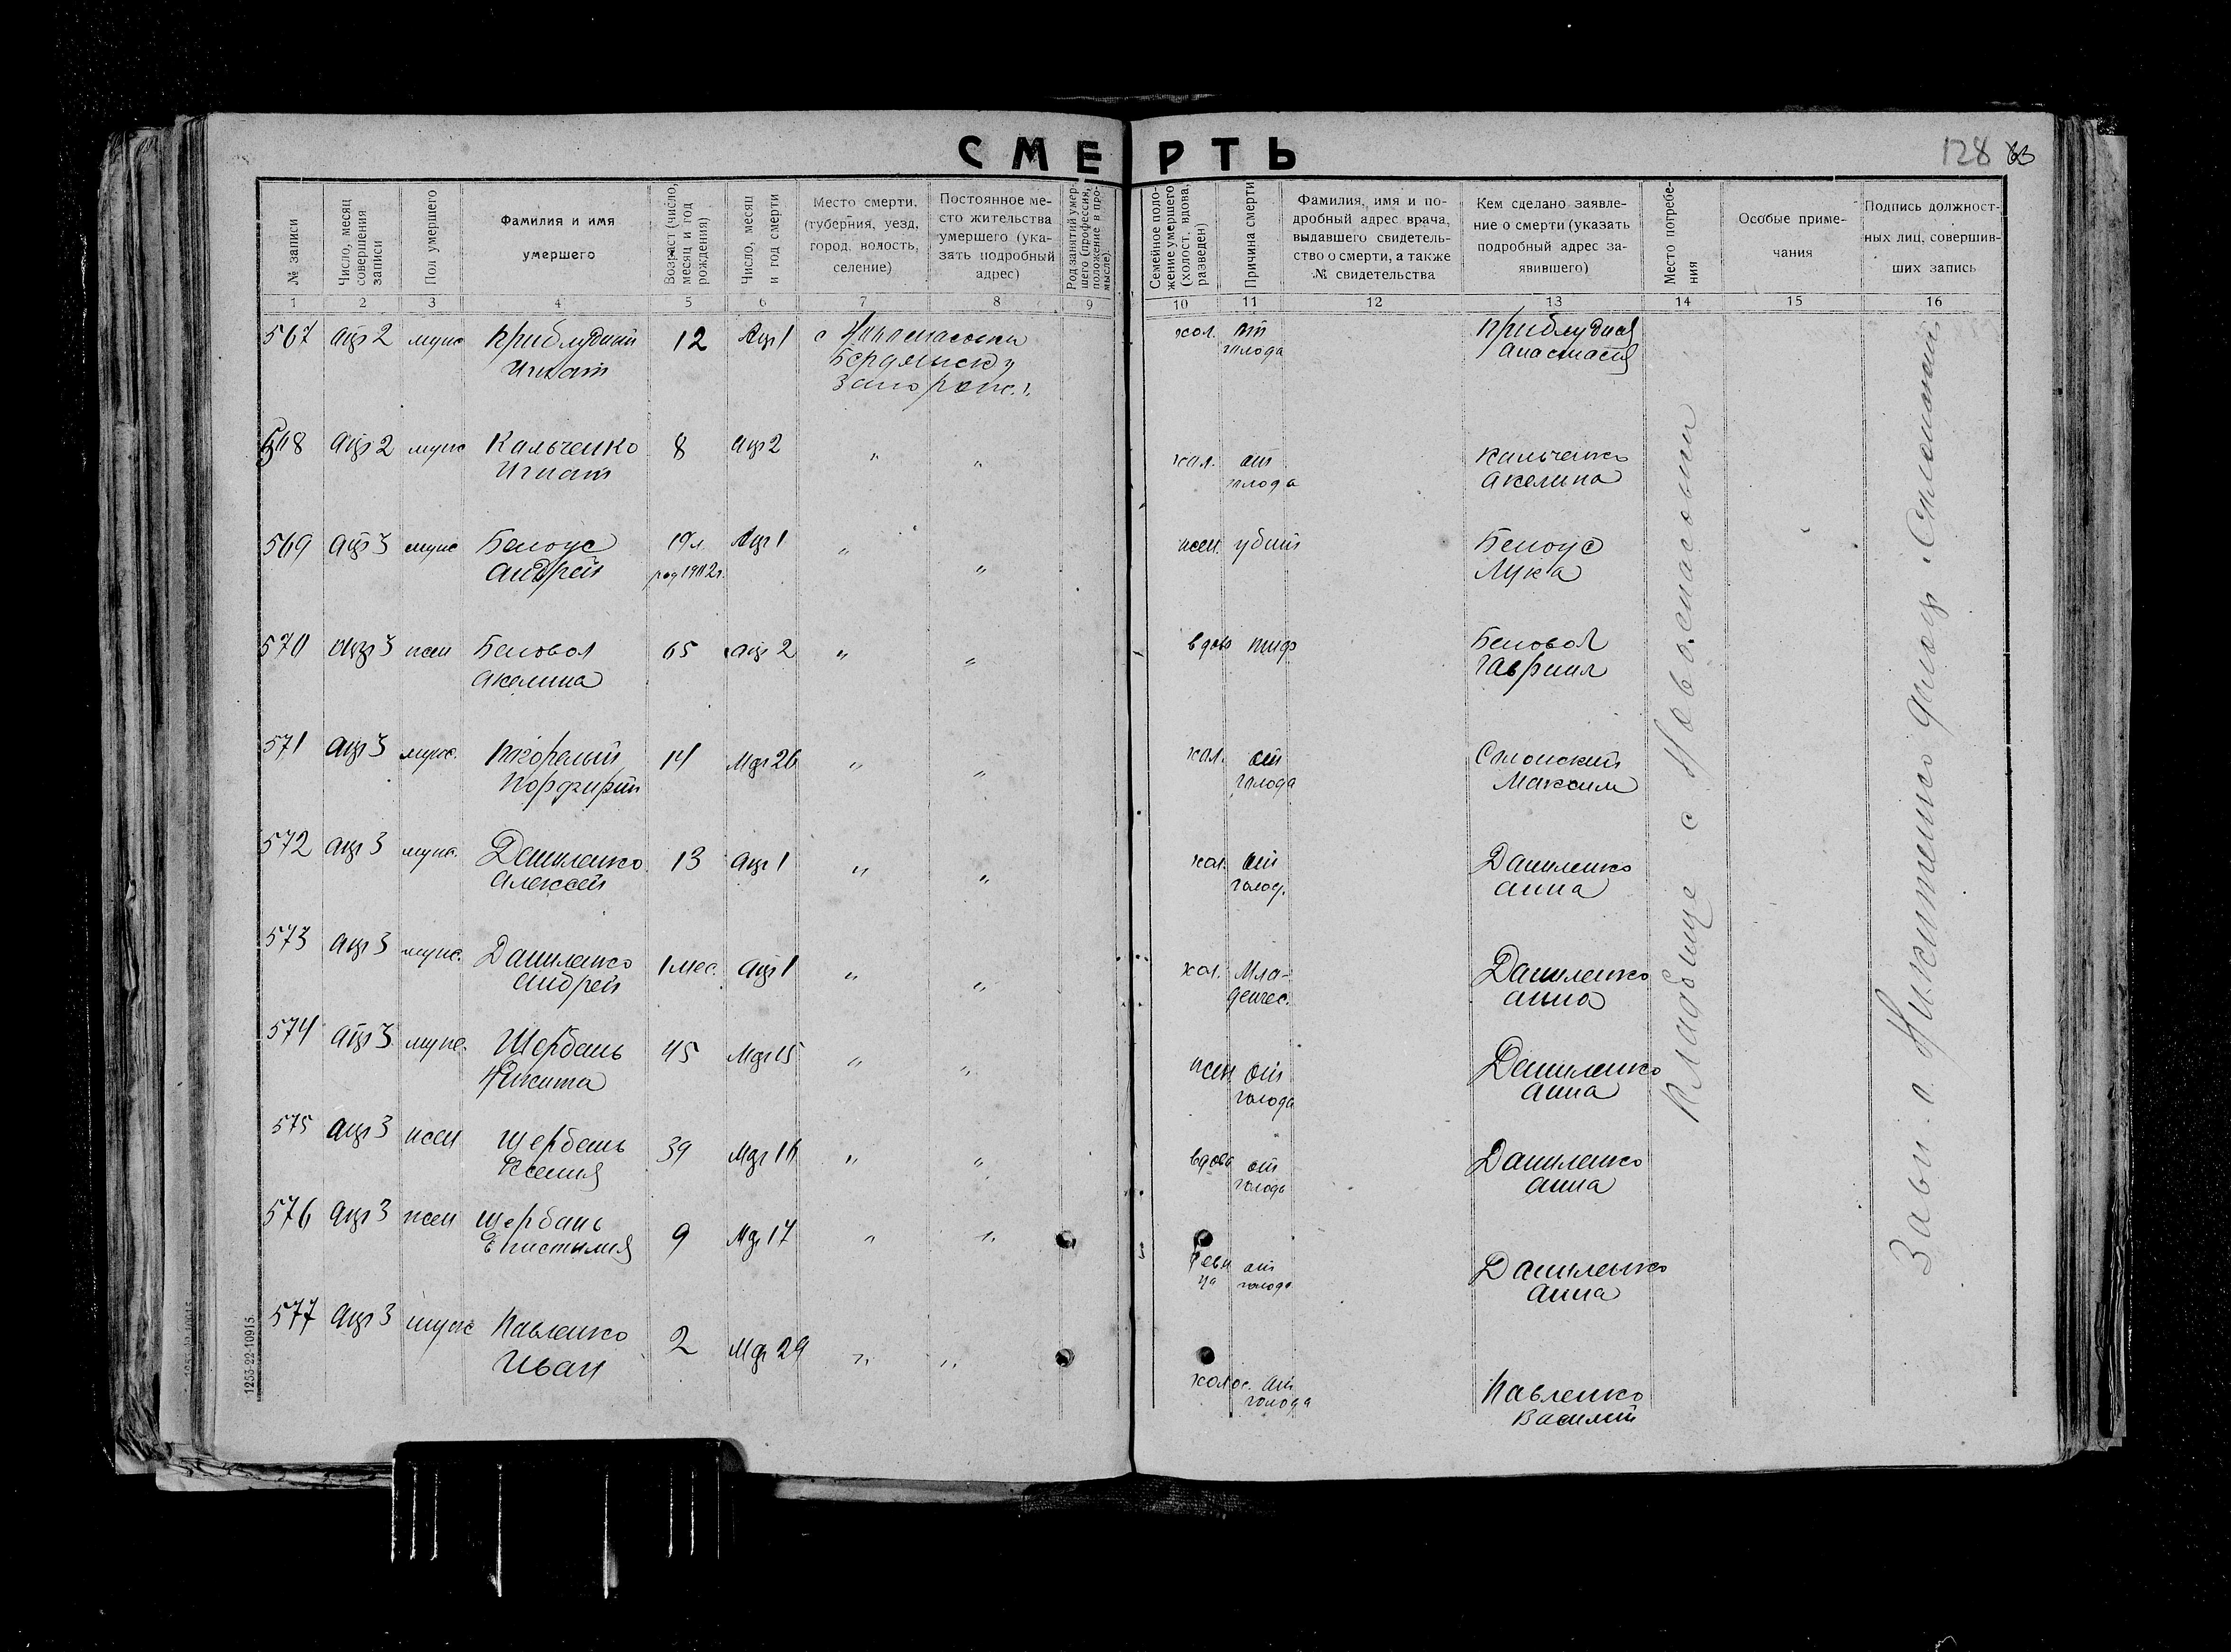 СМЕРТЬ
128
№ записи
Число, месяц совершения записи
Пол умершего
Фамилия и имя
умершего
Возраст (число, месяц и год рождения)
Число, месяц и год смерти
Место смерти, (губерния, уезд, город, волость, селение)
Постоянное место жительства умершего (указать подробный адрес)
Род занятий умершего (профессия, положение в промысле).
Семейное положение умершего (холост, вдова, разведен)
Причина смерти
Фамилия, имя и подробный адрес врача, выдавшего свидетельство о смерти, а также № свидетельства
Кем сделано заявление о смерти (указать подробный адрес заявившего)
Место погребения
Особые примечания
Подпись должностных лиц, совершивших запись
1 2 3 4 5 6 7 8 9 10 11 12 13 14 15 16
567 апр 2 муж Приблудный 12 Апр 1 с хол. от Приблудная
Игнат голода Анастасия
568 апр 2 муж Кальченко 8 апр 2 " " хол. от Кальченко
Игнат голода Акелина
569 апр 3 муж Белоус 19 л. Апр 1 " " жен. убит Белоус
Андрей Лука
570 апр 3 жен Беловол 65 апр 2 " " вдова тиф Беловол
Акелина Гавриил
571 апр 3 муж. 14 Мар 26 " " хол. от Слонский
Порфирий голода Максим
572 апр 3 муж. Даниленко 13 апр 1 " " хол. от Даниленко
Алексей голод. Анна
573 апр 3 муж. Даниленко 1 мес. апр 1 " " хол. Мла- Даниленко
Андрей денчес. Анна
574 апр 3 муж. Щербань 45 Мар 15 " " жен от Даниленко
Никита голода Анна
575 апр 3 жен Щербань 39 Мар 16 " " вдова от Даниленко
Ксения голода Анна
576 апр 3 жен Щербань 9 Мар 17 " " деви от Даниленко
Епистимия ца голода Анна
577 апр 3 муж Павленко 2 Мар 29 " " холос. от Павленко
Иван голода Василий
Кладбище с Новоспасовки
1255-22-10915